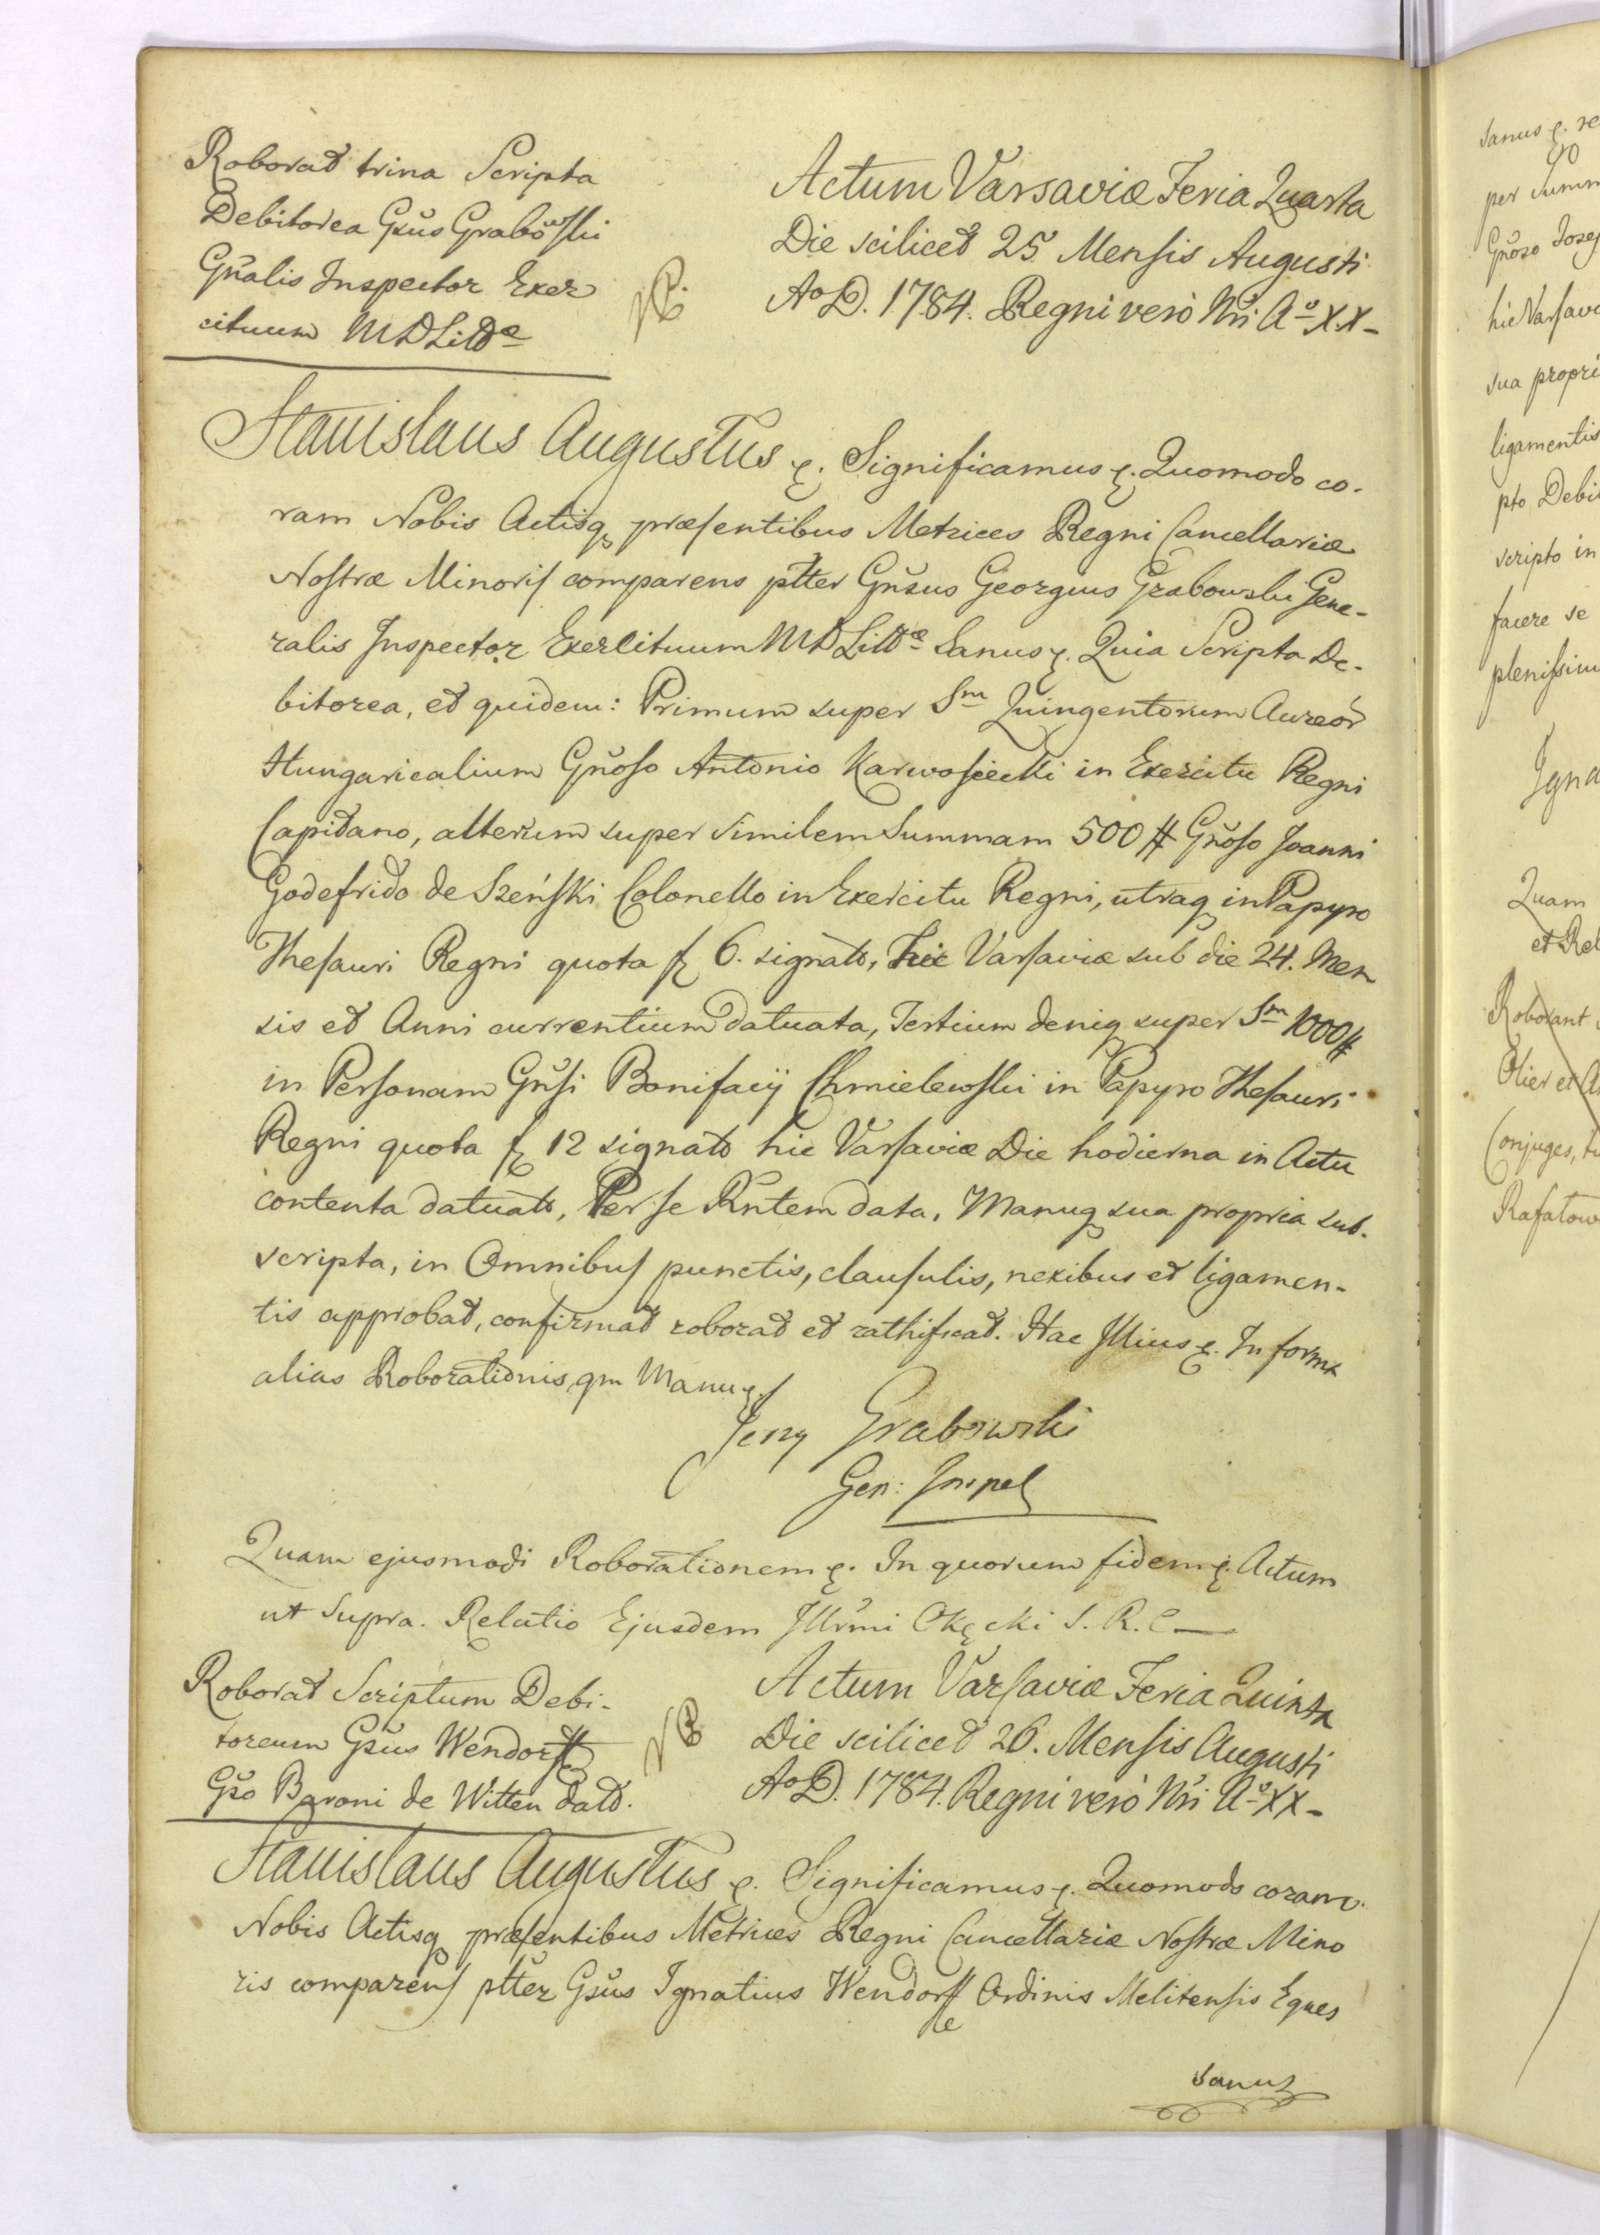 Roborat trina Scripta
Debitorea Gsus Grabowski
Gnalis Inspector Exer
cituum MDLittæ
NB.
Actum Varsaviæ Feria Quarta
Die scilicet 25. Mensis Augusti
Ao D. 1784. Regni vero Nri Ao XX-
Stanislaus Augustus &. Significamus &. Quomodo co-
ram Nobis Actisq præsentibus Metrices Regni Cancellariæ
Nostræ Minoris comparens ptter Gnsus Georgius Grabowski Gene-
ralis Inspector Exercituum MDLittæ Sanus &. Quia Scripta De-
bitorea, et quidem: Primum super Sm Quingentorum Aureor
Hungaricalium Gnoso Antonio Karwosiecki in Exercitu Regni
Capitano, alterum super similem Summam 500 # Gnoso Joanni
Godefrido de Szeński Colonello in Exercitu Regni, utraq in Papyro
Thesauri Regni quota f 6. signato, hic Varsaviæ sub die 24. Men
sis et Anni currentium datuata, Tertium deniq super Sm 1000#
in Personam Gnsi Bonifacij Chmielewski in Papyro Thesauri
Regni quota f 12 signato hic Varsaviæ Die hodierna in Actu
contenta datuato, Per se Rntem data, Manuq sua propria sub-
scripta, in Omnibus punctis, clausulis, nexibus et ligamen-
tis approbat, confirmat roborat et rathificat. Hac Illius &. In forma
alias Roborationis qm Manu &.
Jerzy Grabowski
Gen: Inspek
Quam ejusmodi Roborationem &. In quorum fidem &. Actum
ut Supra. Relatio Ejusdem Illrmi Okęcki S. R. C
Roborat Scriptum Debi-
toreum Gsus Wendorff
Gso Baroni de Witten dato.
NB
Actum Varsaviæ Feria Quinta
Die scilicet 26. Mensis Augusti
Ao D. 1784. Regni vero Nri Ao XX-
Stanislaus Augustus &. Significamus &. Quomodo coram
Nobis Actisq præsentibus Metrices Regni Cancellariæ Nostræ Mino
ris comparens ptter Gsus Ignatius Wendorff Ordinis Melitensis Eques
Sanus
sanus &. re
per Summ
Gnoso Jose
hic Varsavi
sua propri
ligamentis
pto Debi
scripto in
facere se
plenissim
Igna
Quam
et Rel
Roborant
Olier et A
Conjuges, t
Rafatow